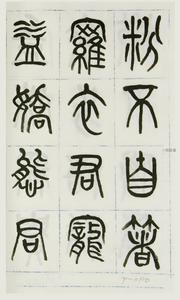 粉不自著
羅衣君寵
益嬌態君